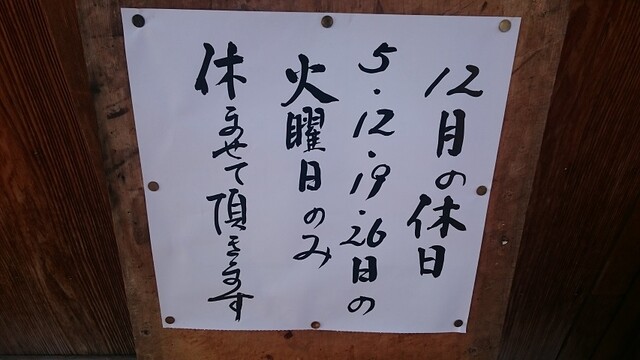 12月の休日
5・12・19・26日の
火曜日のみ
休ませて頂きます